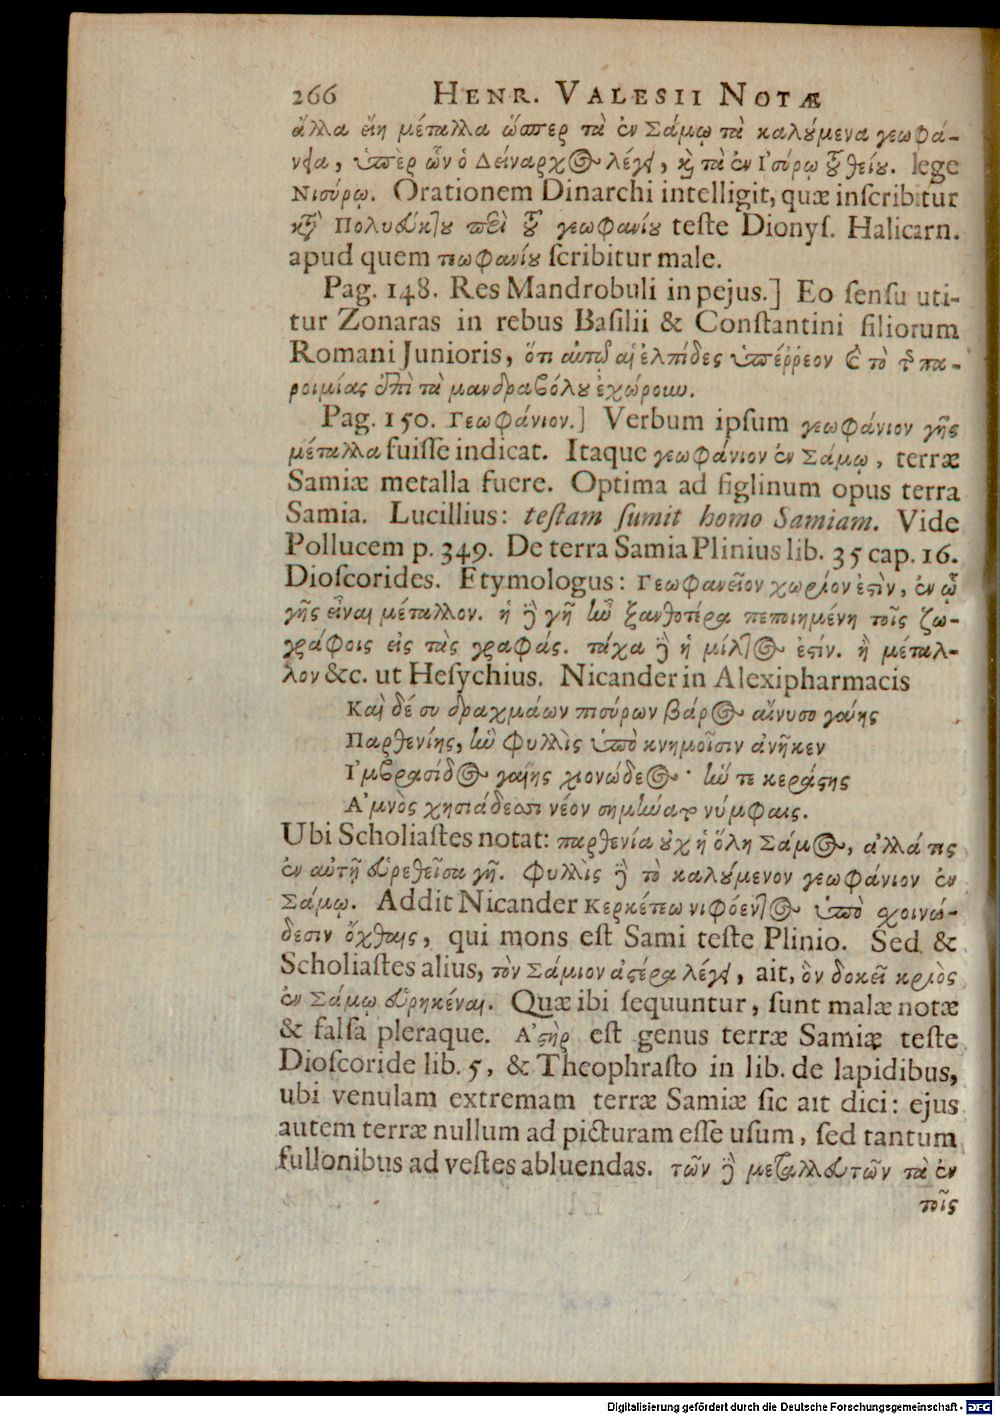 266 HENR. VALESII NOTÆ
ἄλλα εἴη μέταλλα ὥσπερ τὰ ἐν Σάμῳ τὰ καλούμενα γεωφά-
νια, ὑπὲρ ὧν ὁ Δείναρχος λέγει, καὶ τὰ ἐν Ἰσύρῳ τοῦ θείου. lege
Νισύρῳ. Orationem Dinarchi intelligit, quæ inscribitur
κατὰ Πολυεύκτου περὶ τοῦ γεωφανίου teste Dionys. Halicarn.
apud quem πεωφανίου scribitur male.
Pag. 148. Res Mandrobuli in pejus.] Eo sensu uti-
tur Zonaras in rebus Basilii & Constantini filiorum
Romani Junioris, ὅτι αὐτῷ αἱ ἐλπίδες ὑπέῤῥεον καὶ τὸ τῆς πα-
ροιμίας ἐπὶ τὰ μανδραβόλου ἐχώρουν.
Pag. 150. Γεωφάνιον.] Verbum ipsum γεωφάνιον γῆς
μέταλλα fuisse indicat. Itaque γεωφάνιον ἐν Σάμῳ, terræ
Samiæ metalla fuere. Optima ad figlinum opus terra
Samia. Lucillius: testam sumit homo Samiam. Vide
Pollucem p. 349. De terra Samia Plinius lib. 35 cap. 16.
Dioscorides. Etymologus: Γεωφανεῖον χωρίον ἐστὶν, ἐν ᾧ
γῆς εἶναι μέταλλον. ἡ δὲ γῆ ἦν ξανθοτέρα πεποιημένη τοῖς ζω-
γράφοις εἰς τὰς γραφάς. τάχα δὲ ἡ μίλτος ἐστίν. ἢ μέταλ-
λον &c. ut Hesychius. Nicander in Alexipharmacis
Καὶ δέ συ δραχμάων πισύρων βάρος αἴνυσο γαίης
Παρθενίης, ἣν Φυλλὶς ὑπὸ κνημοῖσιν ἀνῆκεν
Ἰμβρασίδος γαίης χιονώδεος· ἥν τε κεράστης
Ἀμνὸς χησιάδεσσι νέον σημήνατο νύμφαις.
Ubi Scholiastes notat: παρθενία οὐχ ἡ ὅλη Σάμος, ἀλλά τις
ἐν αὐτῇ εὑρεθεῖσα γῆ. Φυλλὶς δὲ τὸ καλούμενον γεωφάνιον ἐν
Σάμῳ. Addit Nicander Κερκέτεω νιφόεντος ὑπὸ σχοινώ-
δεσιν ὄχθαις, qui mons est Sami teste Plinio. Sed &
Scholiastes alius, τὸν Σάμιον ἀστέρα λέγει, ait, ὃν δοκεῖ κριὸς
ἐν Σάμῳ εὑρηκέναι. Quæ ibi sequuntur, sunt malæ notæ
& falsa pleraque. Ἀστὴρ est genus terræ Samiæ teste
Dioscoride lib. 5, & Theophrasto in lib. de lapidibus,
ubi venulam extremam terræ Samiæ sic ait dici: ejus
autem terræ nullum ad picturam esse usum, sed tantum
fullonibus ad vestes abluendas. τῶν δὲ μεταλλευτῶν τὰ ἐν
τοῖς
Digitalisierung gefördert durch die Deutsche Forschungsgemeinschaft - DFG